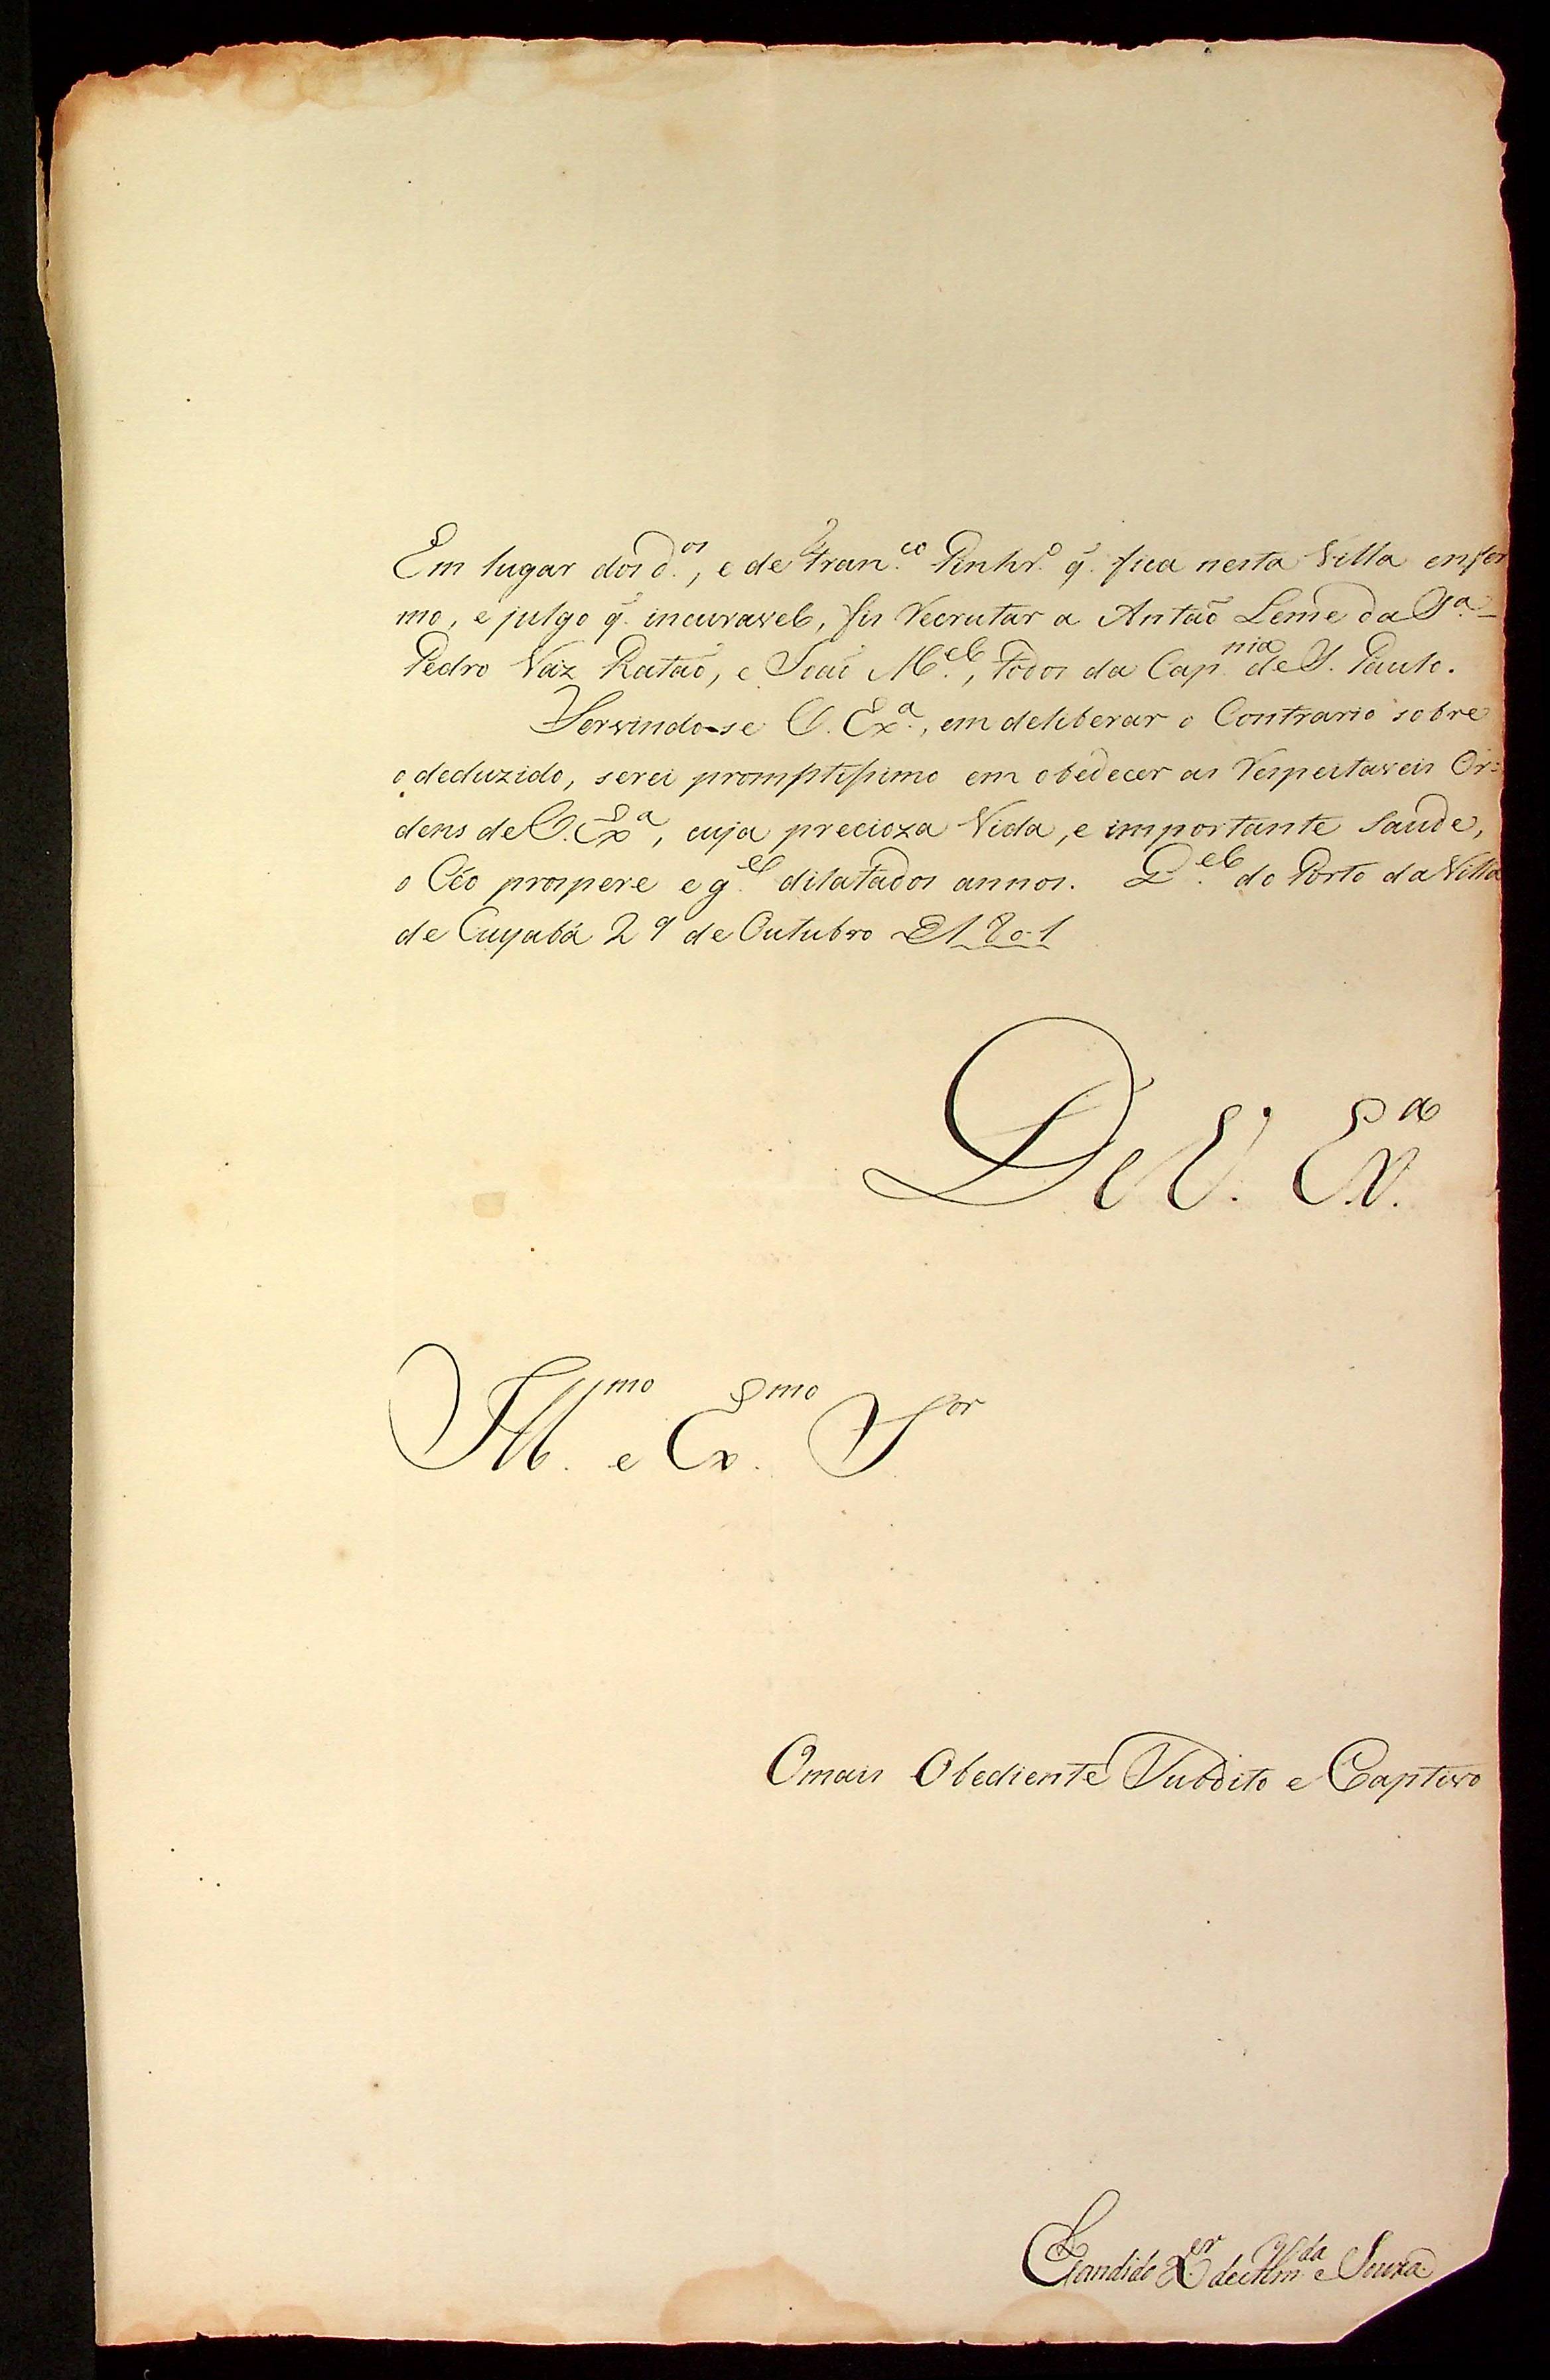 Em lugar dos d.os, e de Fran.co Pinhr.o q̃. fica nesta Villa enfer
mo, e julgo q̃. incuravel, fis recrutar a Antaõ Leme da S.a
Pedro Vaz Rataõ, e Joaõ M.el, todos da Cap.nia de S. Paulo.
Servindo-se V. Ex.a, em deliberar o Contrario sobre
o deduzido, serei promptissimo em obedecer as respeitaveis Or=
dens de V. Ex.a, cuja precioza Vida, e importante saude,
o Céo prospere e g.e dilatados annos. Q.el do Porto da Villa
de Cuyabá 29 de Outubro D 1801
De V. Ex.a
Ill.mo e Ex.mo S.or
O mais Obediente Subdito e Captivo
Candido X.er de Alm.da e Souza